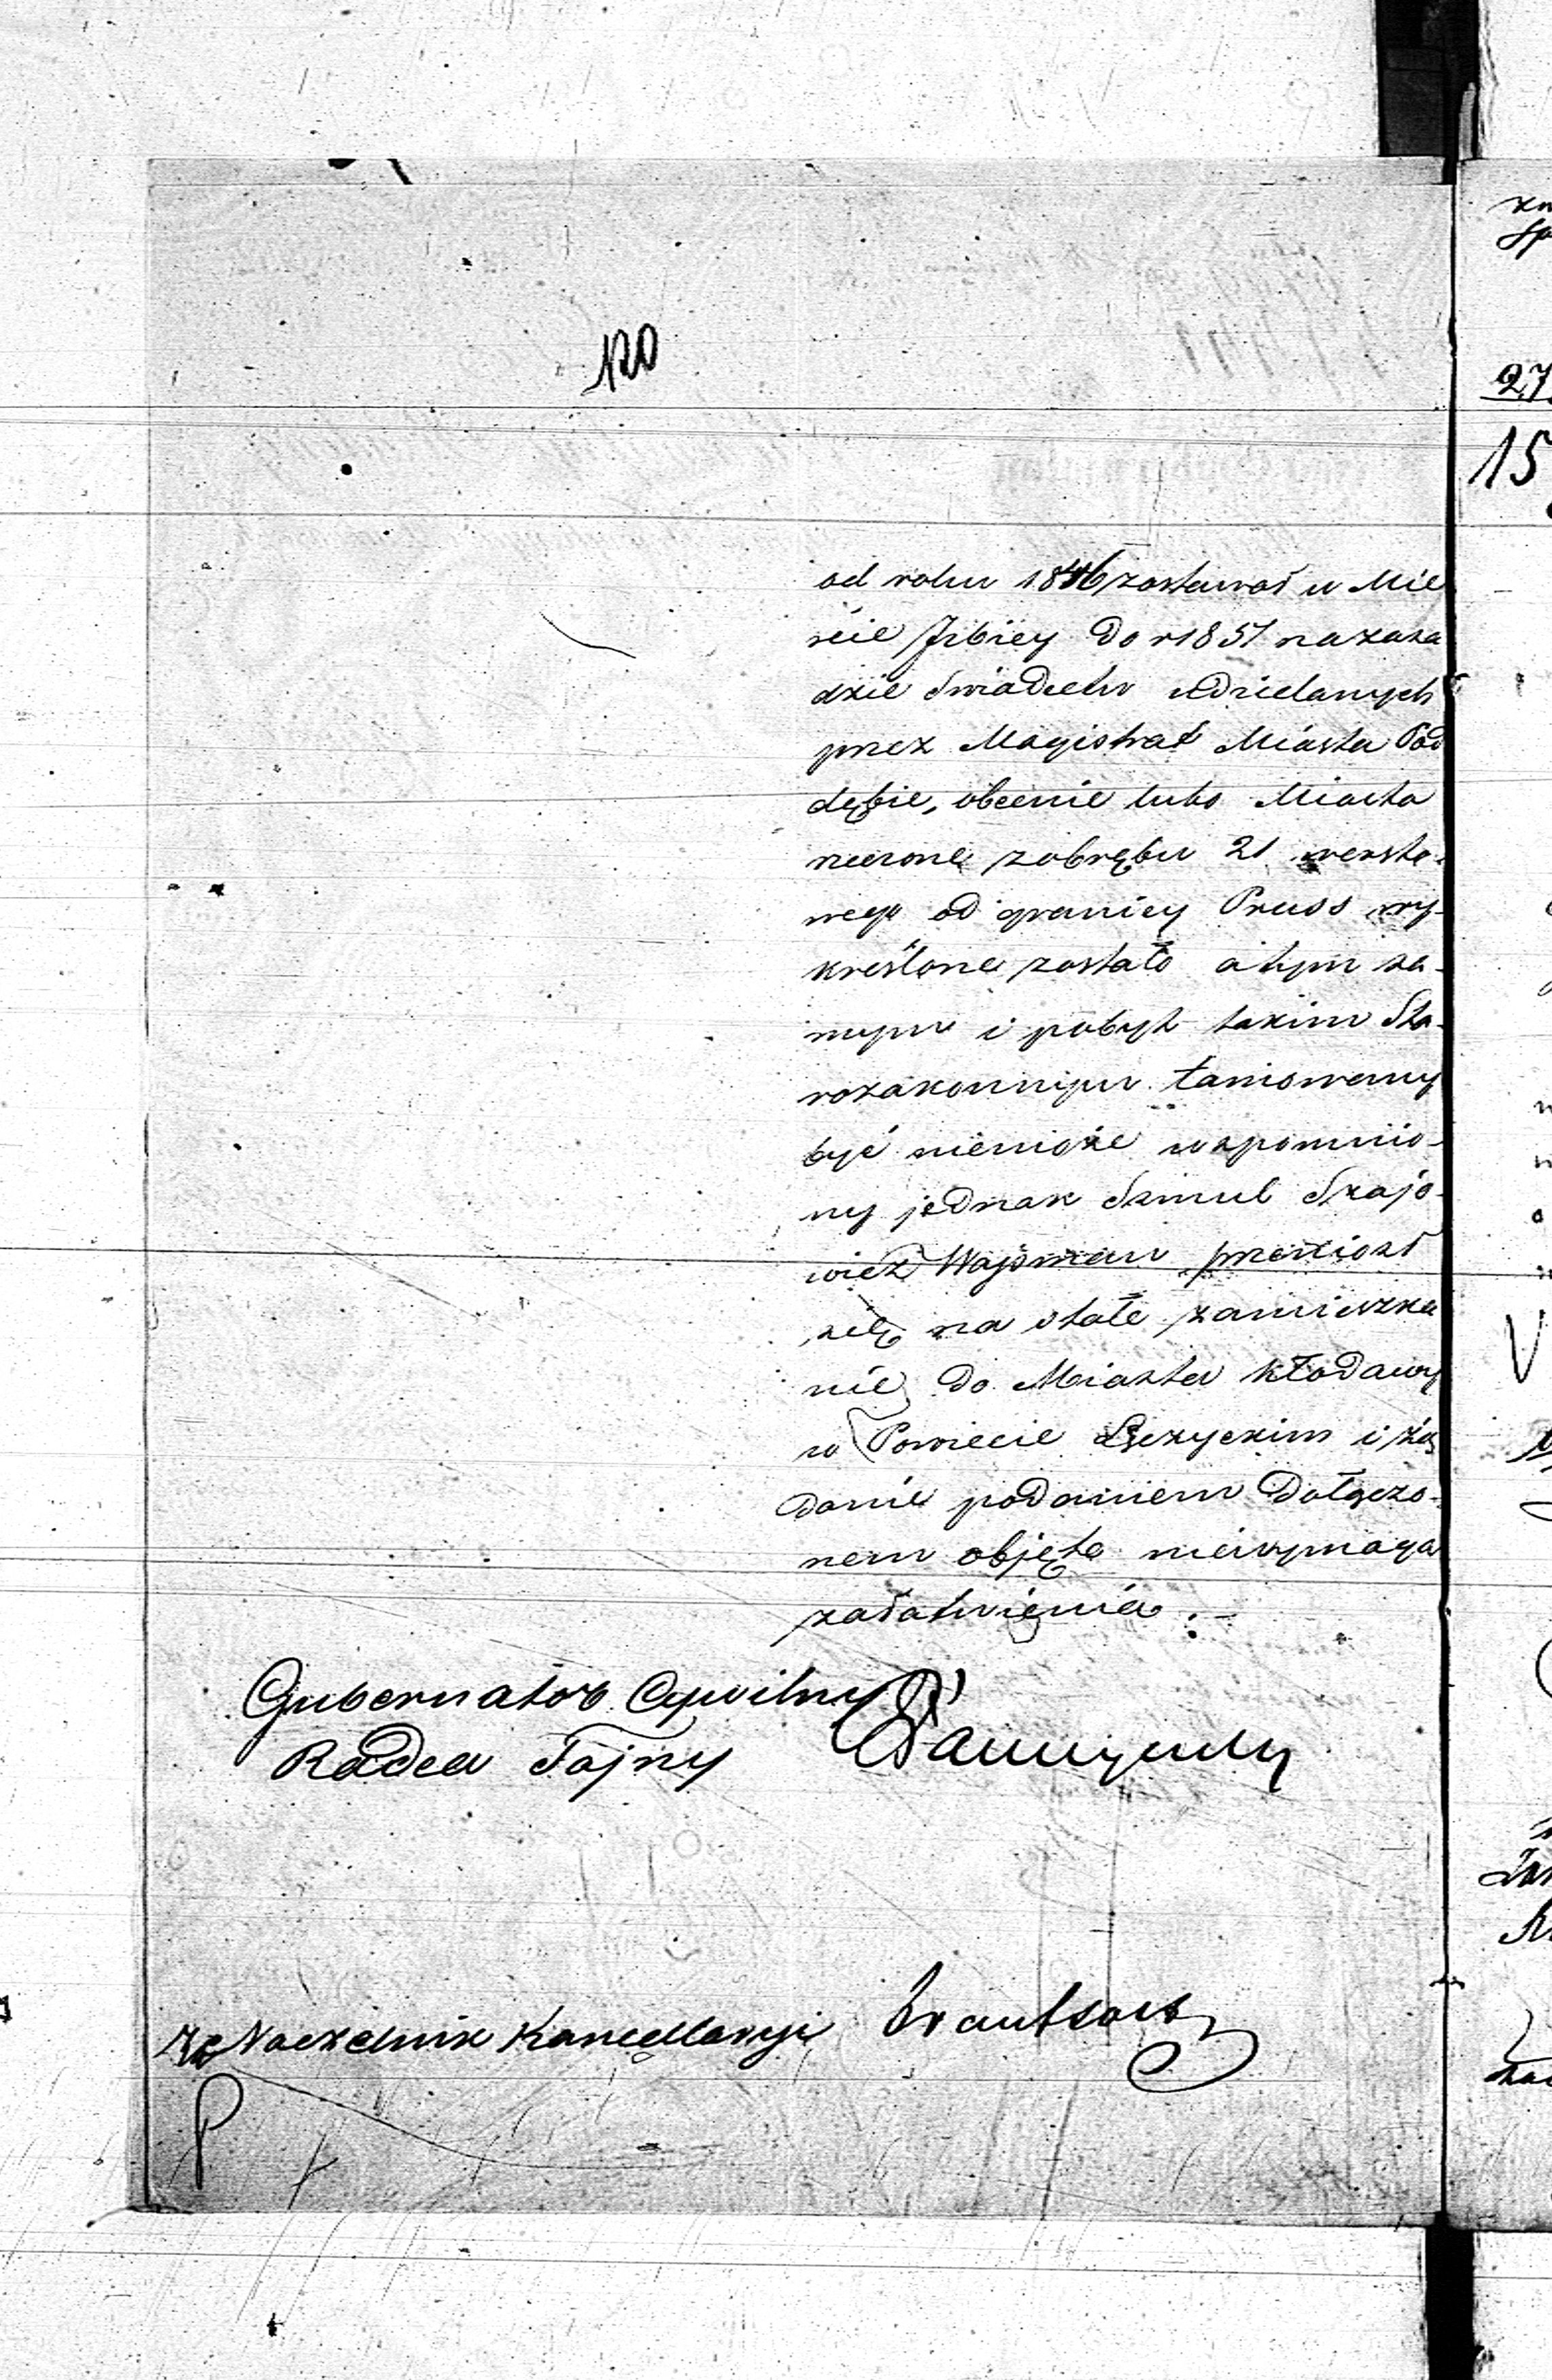 120
od roku 1846 zostawał w Mie
ście Izbicy do r 1851 na zasa
dzie Świadectw udzielanych
przez Magistrat Miasta Pod
dębie, obecnie lubo Miasto
rzeczone z obrębu 21 wersto-
wego od granicy Pruss wy-
kreślone zostało a tym sa-
mym i pobyt takim Sta-
rozakonnym tamowany
być niemoże wspomnio-
ny jednak Szmul Szajo-
wicz Wajsman przeniosł
się na stałe zamieszka
nie do Miasta Kłodawy
w Powiecie Łęczyckim i żą
danie podaniem dołączo-
nem objęte niewymaga
załatwienia.
Gubernator Cywilny
Radca Tajny
Naczelnik Kancellaryi
27
15